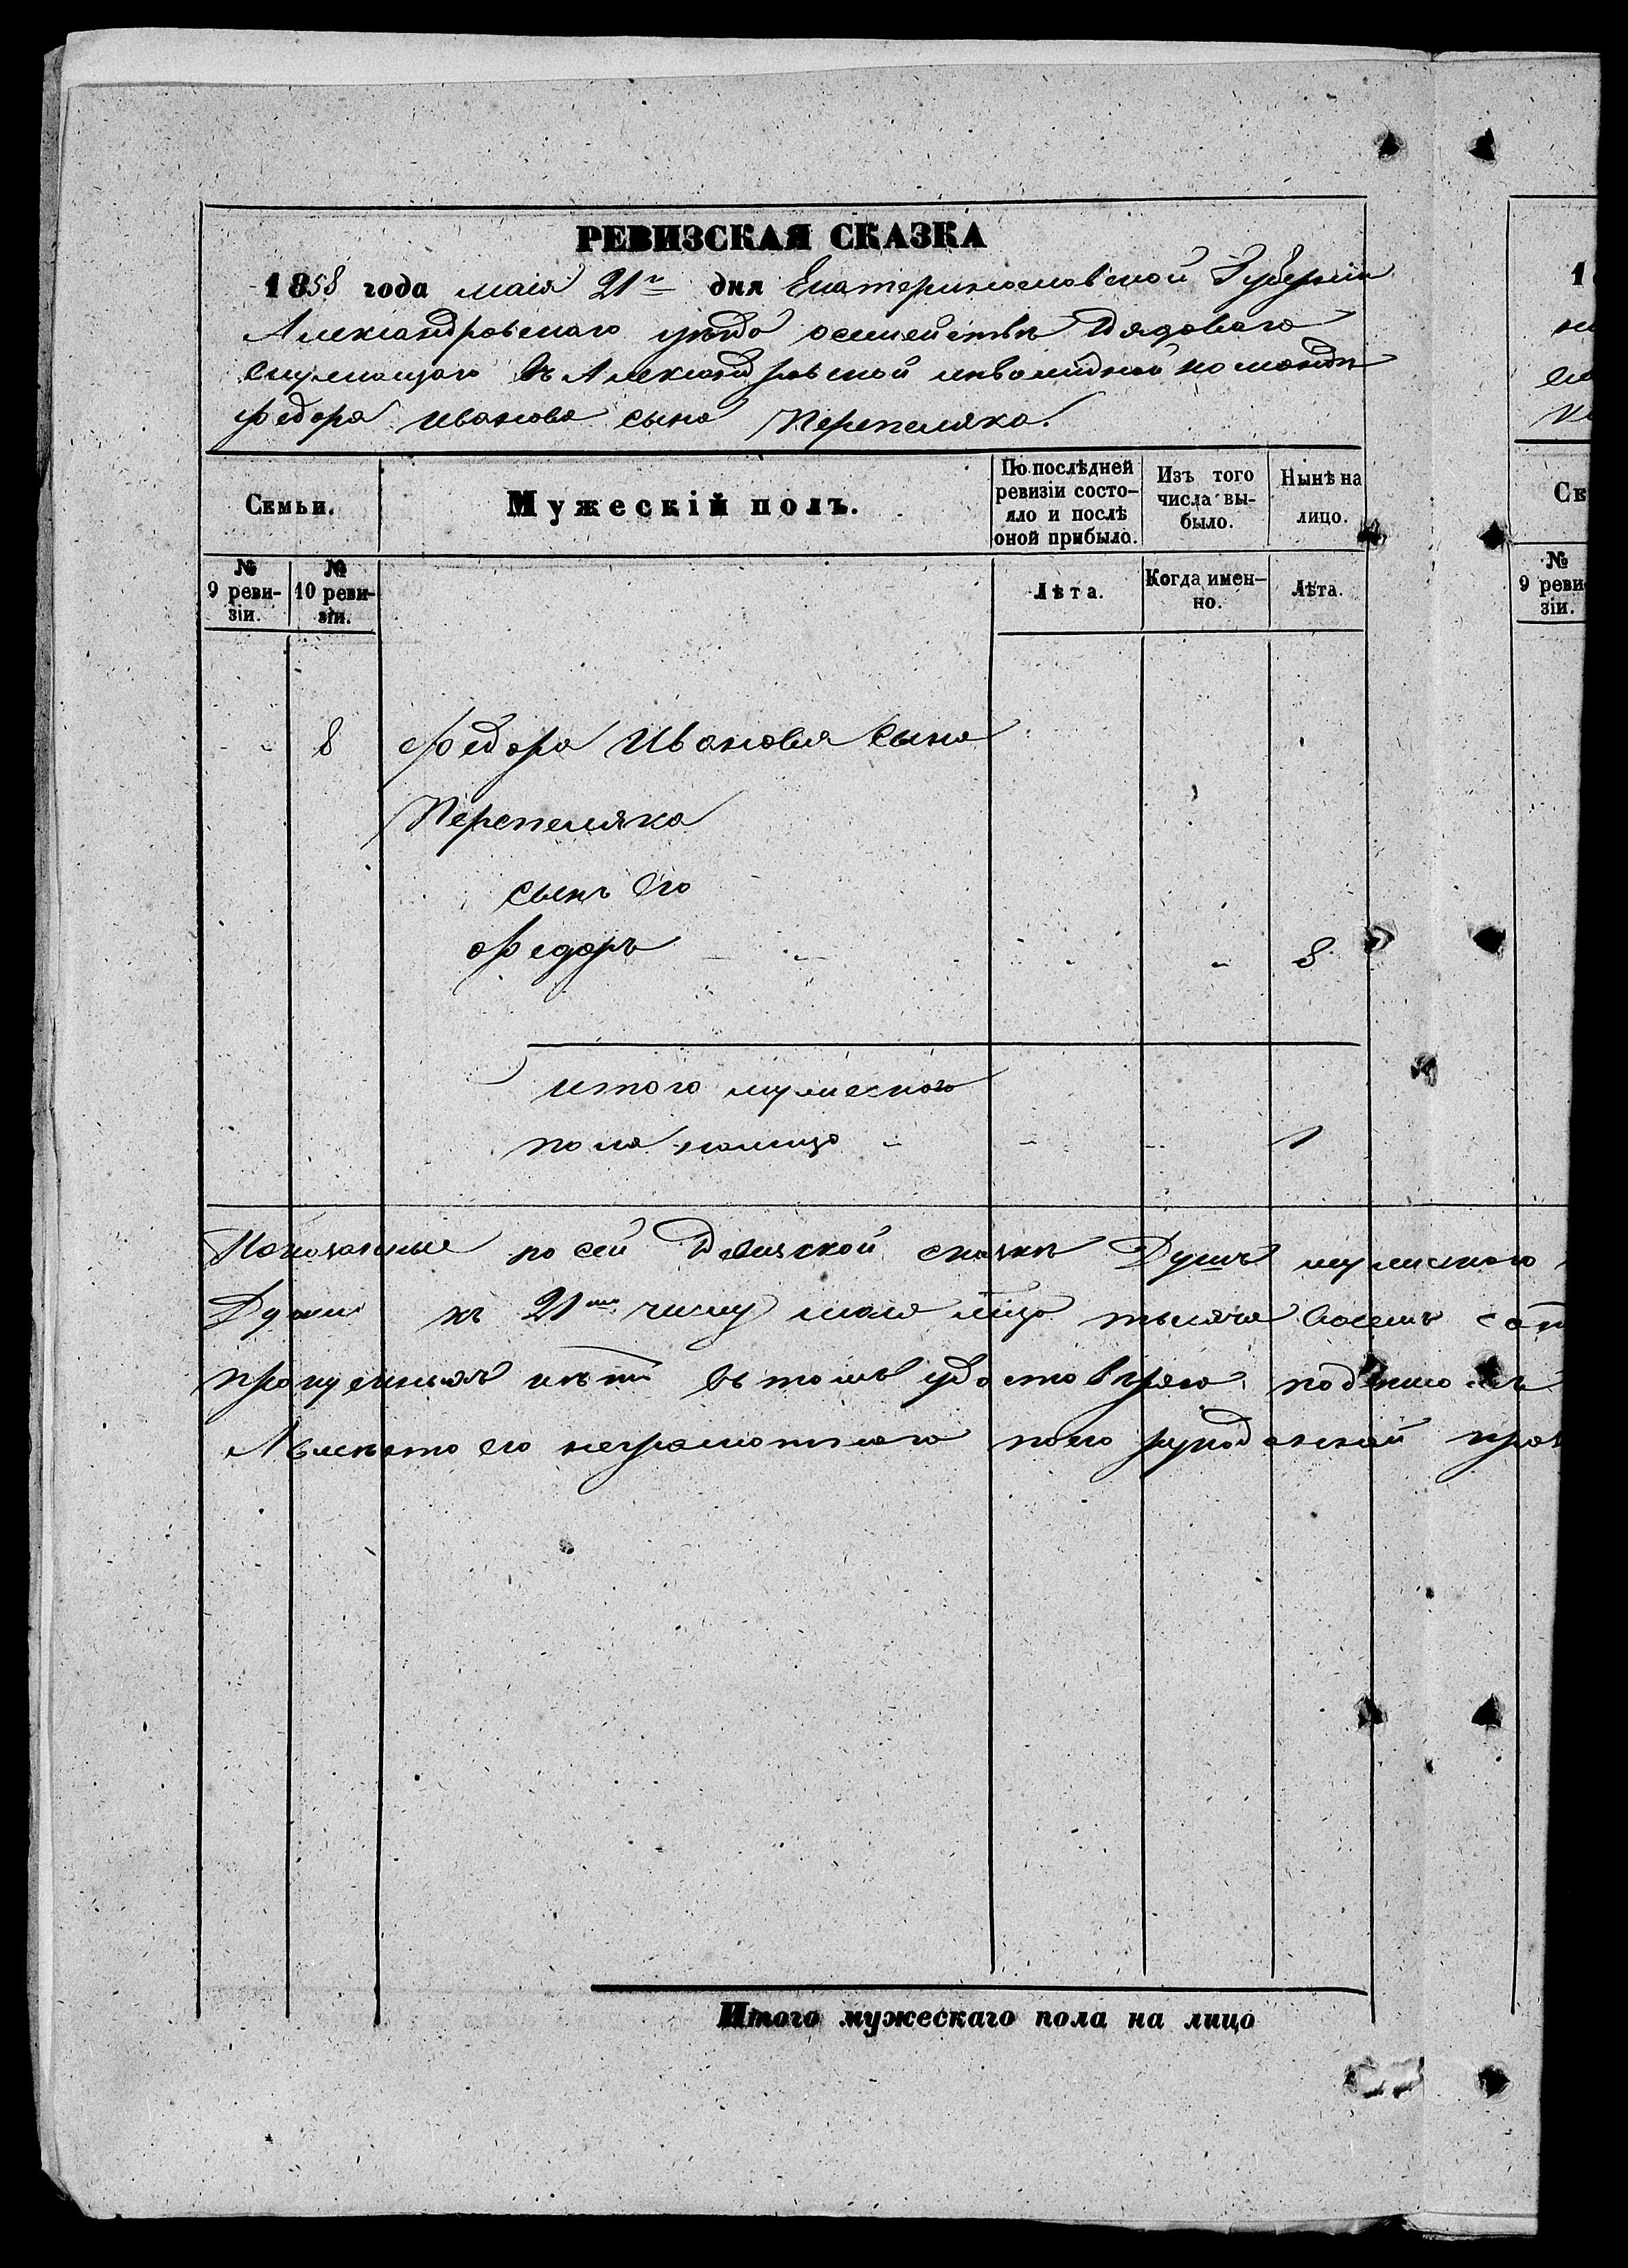 РЕВИЗСКАЯ СКАЗКА
1858 года маія 21го дня Екатеринославской Губерніи
Александровскаго уѣзда осемействѣ Рядоваго
служащаго въ Александровской инвалидной командѣ
Федора Иванова сына Перепеляка.
Семьи.
Мужескій полъ.
По послѣдней ревизіи состо-
яло и послѣ
оной прибыло.
Изъ того
числа вы-
было.
Нынѣ на
лицо.
№
9 реви-
зіи.
№
10 реви-
зіи.
Лѣта.
Когда имен-
но.
Лѣта.
8 Федора Иванова сына
Перепеляка
сынъ его
Федоръ 8
итого мужескаго
пола налицо 1
Показанные по сей Ревизской сказкѣ Душъ мужескаго
Души къ 21му числу маія тысяча восемь сот
пропущенныхъ нѣтъ въ томъ удостовѣряю подписомъ
А вместо его неграмотнаго поего рукоданной
Итого мужескаго пола на лицо
1
Се
№
9 реви
зіи.